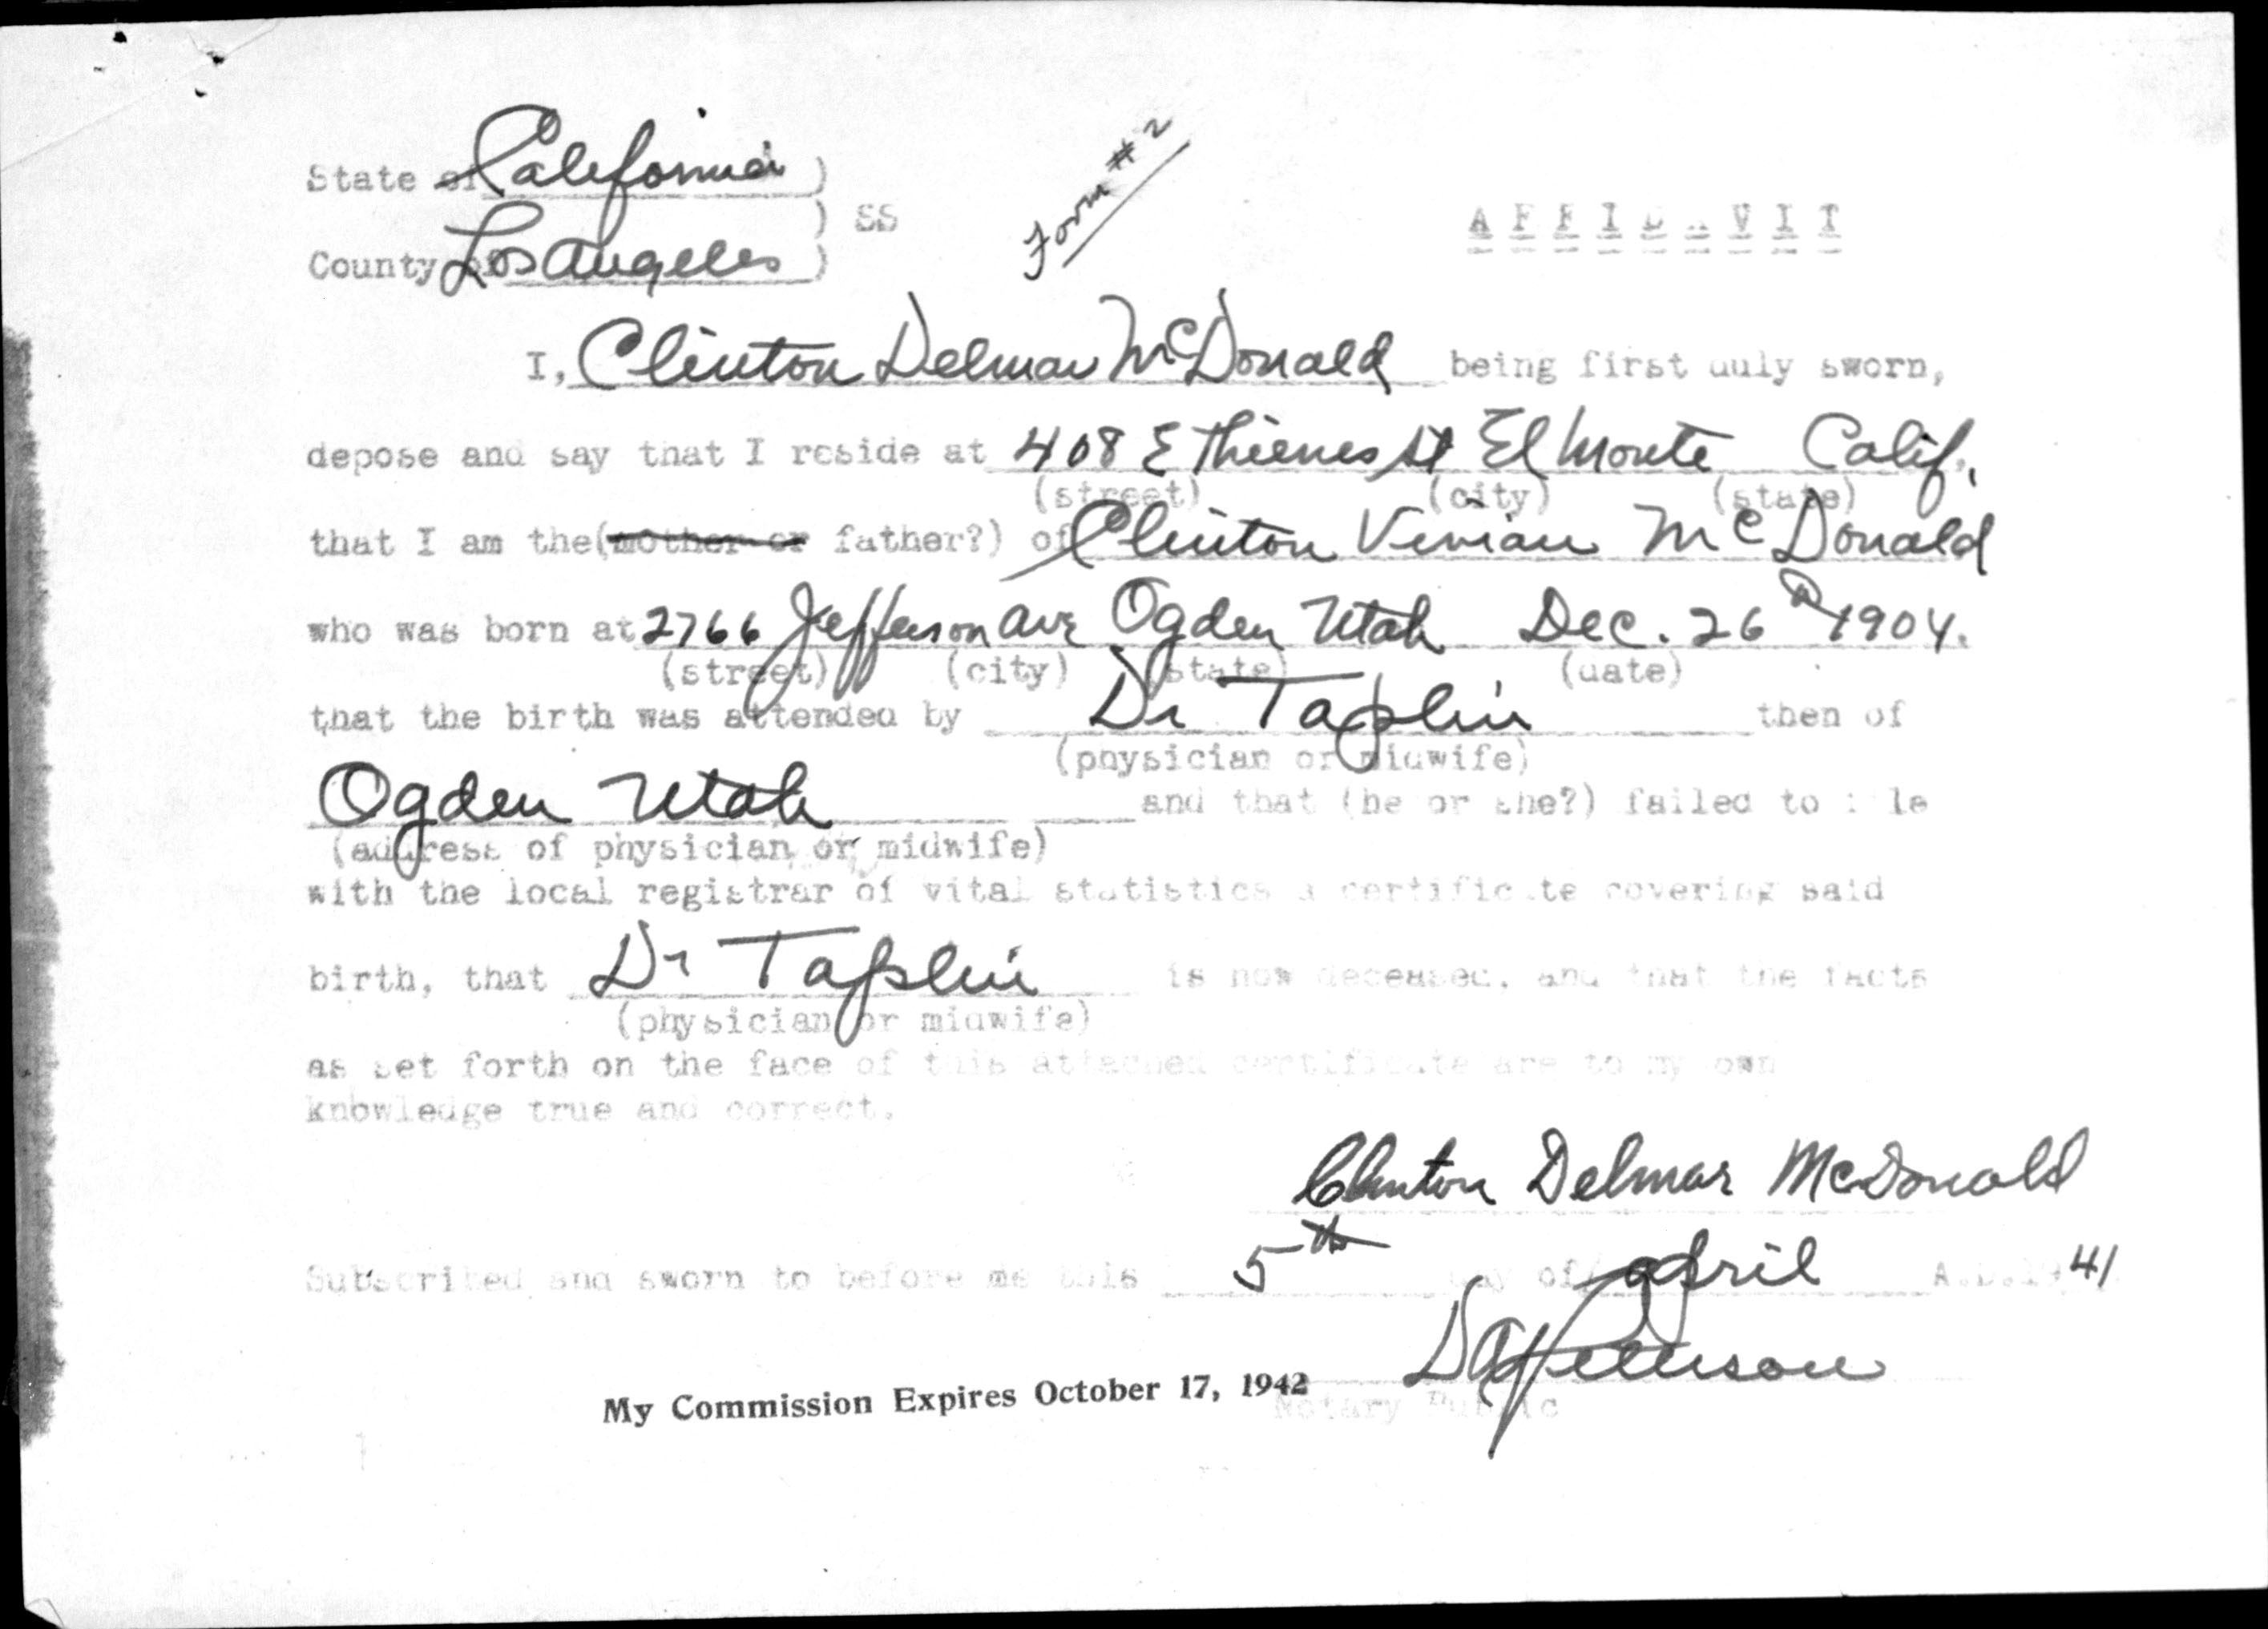 State of California )
) SS
Form # 2
AFFIDAVIT
County of Los Angeles )
I, Clinton Delmar McDonald being first duly sworn,
depose and say that I reside at 408 E Thienes St El Monte Calif.
(street) (city) (state)
that I am the (mother or father?) of Clinton Vivian McDonald
who was born at 2766 Jefferson Ave Ogden Utah Dec. 26th 1904.
(street) (city) (state) (date)
that the birth was attended by Dr Taplin then of
(physician or midwife)
Ogden Utah and that (he or she?) failed to file
(address of physician or midwife)
with the local registrar of vital statistics a certificate covering said
birth, that Dr Taplin is now deceased, and that the facts
(physician or midwife)
as set forth on the face of this attached certificate are to my own
knowledge true and correct.
Clinton Delmar McDonald
Subscribed and sworn to before me this 5th day of April A.D.1941
My Commission Expires October 17, 1942
Notary Public